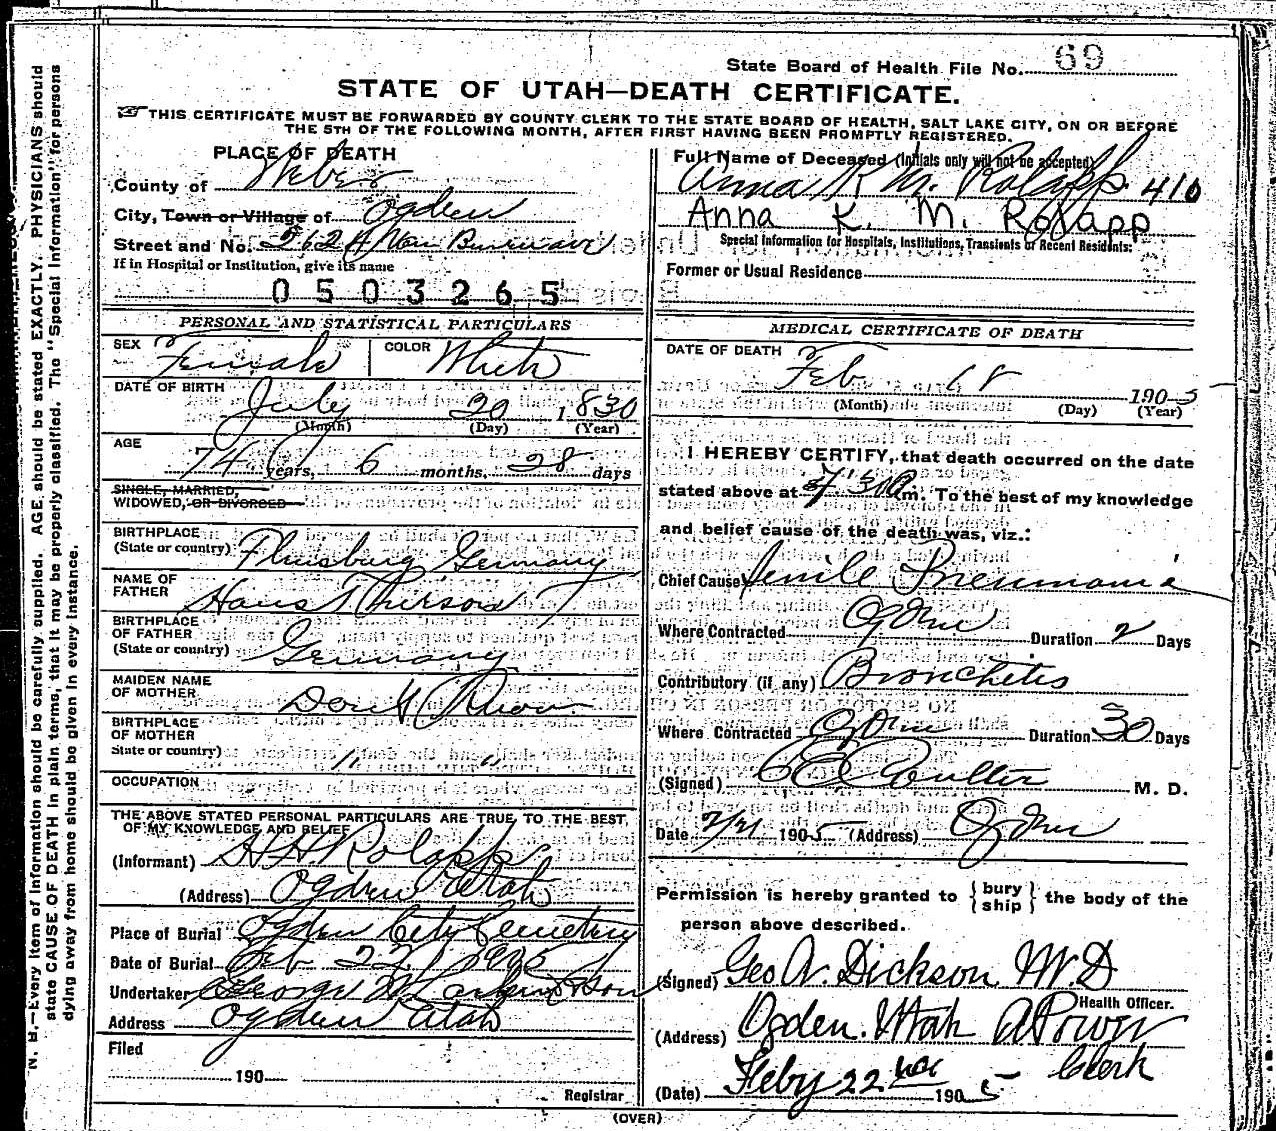 State Board of Health File No. 69
STATE OF UTAH—DEATH CERTIFICATE.
THIS CERTIFICATE MUST BE FORWARDED BY COUNTY CLERK TO THE STATE BOARD OF HEALTH, SALT LAKE CITY, ON OR BEFORE
THE 5TH OF THE FOLLOWING MONTH, AFTER FIRST HAVING BEEN PROMPTLY REGISTERED.
PLACE OF DEATH
County of Weber
City, Town or Village of Ogden
Street and No.
If in Hospital or Institution, give its name
0503265
PERSONAL AND STATISTICAL PARTICULARS
SEX Female COLOR White
DATE OF BIRTH July 20 1830
(Month) (Day) (Year)
AGE
74 years, 6 months, 28 days
SINGLE, MARRIED,
WIDOWED, OR DIVORCED
BIRTHPLACE
(State or country) Germany
NAME OF
FATHER Hans
BIRTHPLACE
OF FATHER
(State or country) Germany
MAIDEN NAME
OF MOTHER Dont Know
BIRTHPLACE
OF MOTHER
State or country) " "
OCCUPATION
THE ABOVE STATED PERSONAL PARTICULARS ARE TRUE TO THE BEST
OF MY KNOWLEDGE AND BELIEF
(Informant) H H Rolapp
(Address) Ogden Utah
Place of Burial Ogden City Cemetery
Date of Burial Feb 22 1905
Undertaker George W Larkin & Son
Address Ogden Utah
Filed
190
Registrar
Full Name of Deceased (Initials only will not be accepted)
Anna K M. Rolapp. 410
Anna K. M. Rolapp
Special Information for Hospitals, Institutions, Transients or Recent Residents:
Former or Usual Residence
MEDICAL CERTIFICATE OF DEATH
DATE OF DEATH
Feb 18 1905
(Month) (Day) (Year)
I HEREBY CERTIFY, that death occurred on the date
stated above at m. To the best of my knowledge
and belief cause of the death was, viz.:
Chief Cause Senile Pneumonia
Where Contracted Ogden Duration 2 Days
Contributory (if any) Bronchitis
Where Contracted Ogden Duration 30 Days
(Signed) Coulter M. D.
Date 2/21 1905 (Address) Ogden
Permission is hereby granted to { bury ship } the body of the
person above described.
(Signed) Geo A. Dickson M.D
Health Officer.
(Address) Ogden. Utah A Power
Clerk
(Date) Feby 22nd 1905
(OVER)
N. B.—Every item of information should be carefully supplied. AGE should be stated EXACTLY. PHYSICIANS should
state CAUSE OF DEATH in plain terms, that it may be properly classified. The "Special Information" for persons
dying away from home should be given in every instance.